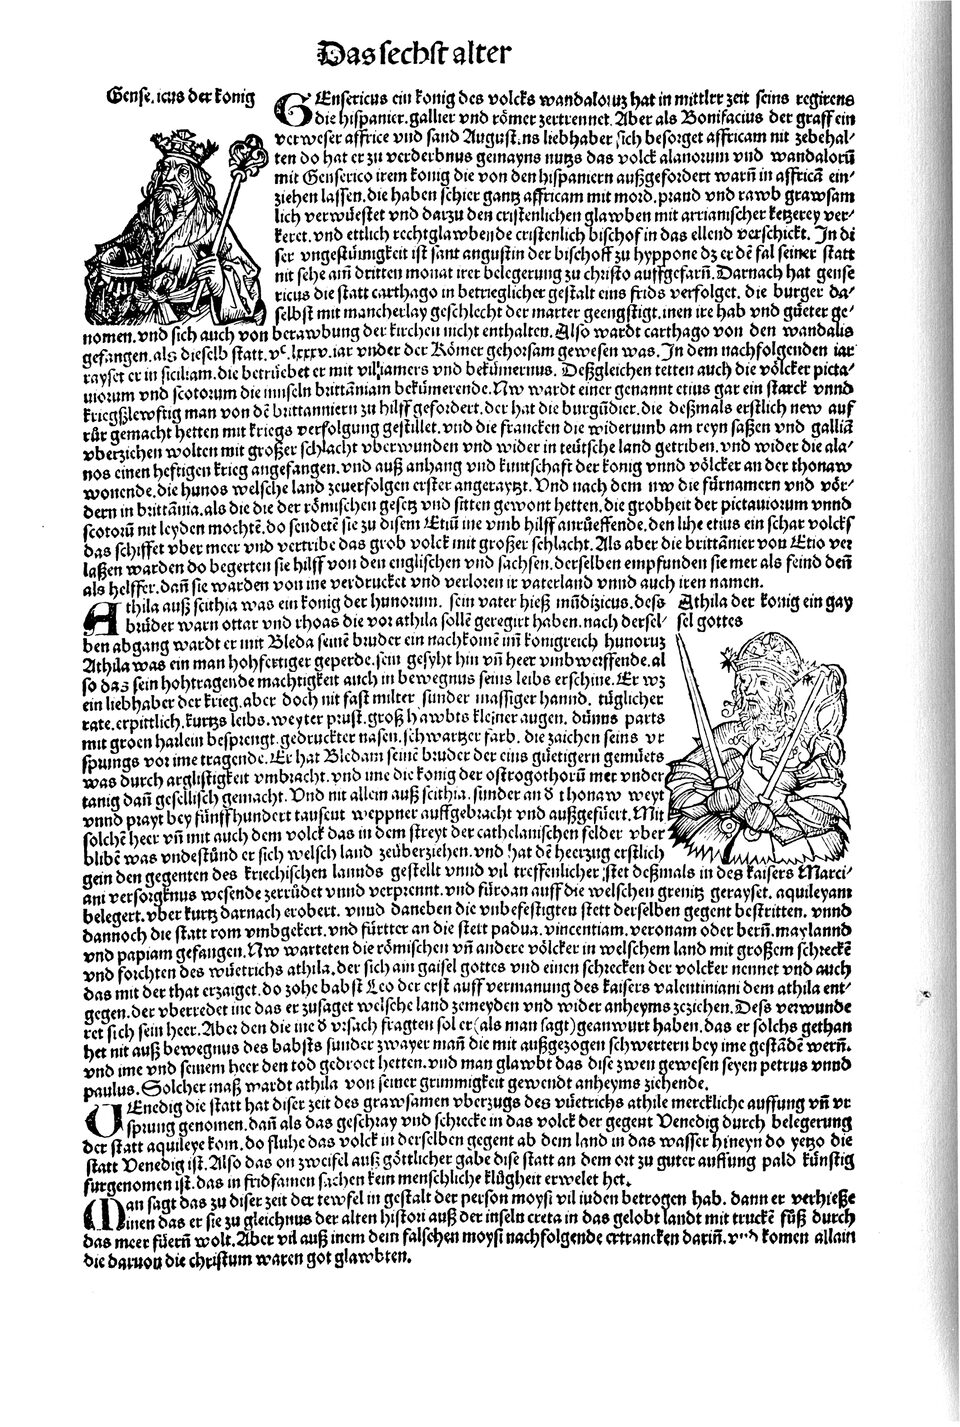 Das sechst alter
Gense.icus der konig
GEnsericus ein konig des volcks wandaloruz hat in mittlrr zeit seins regirens
die hispanier.gallier vnd römer zertrennet.Aber als Bonifacius der graff ein
verweser affrice vnd sand August.ns liebhaber sich besorget affricam nit zebehal-
ten do hat er zu verderbnus gemayns nutzs das volck alanorum vnd wandalorū
mit Genserico irem konig die von den hispaniern außgefordert warn̄ in affricā ein-
ziehen lassen.die haben schier gantz affricam mit mord.prand vnd rawb grawsam
lich verwüestet vnd darzu den cristenlichen glawben mit arrianischer ketzerey ver-
keret.vnd ettlich rechtglawbende cristenlich bischof in das ellend verschickt. In di
ser vngestümigkeit ist sant augustin der bischoff zu hyppone dz er dē fal seiner statt
nit sehe am̄ dritten monat irer belegerung zu christo auffgefarn̄.Darnach hat gense
ricus die statt carthago in betrieglicher gestalt eins frids verfolget. die burger da-
selbst mit mancherlay geschlecht der marter geengstigt.inen ire hab vnd güeter ge-
nomen.vnd sich auch von berawbung der kirchen nicht enthalten.Also wardt carthago von den wandalis
gefangen.als dieselb statt.vᶜ.lxxxv.iar vnder der Römer gehorsam gewesen was.In dem nachfolgenden iar
rayset er in siciliam.die betrüebet er mit vil iamers vnd bekümernus. Deßgleichen tetten auch die völcker picta-
uiorum vnd scotorum die innseln brittāniam bekümerende.Nw wardt einer genannt etius gar ein starck vnnd
kriegßlewftig man von dē brittanniern zu hilff gefordert.der hat die burgūdier.die deßmals erstlich new auf
rūr gemacht hetten mit kriegs verfolgung gestillet.vnd die francken die widerumb am reyn saßen vnd galliā
vberziehen wolten mit großer schlacht vberwunden vnd wider in teütsche land getriben.vnd wider die ala-
nos einen heftigen krieg angefangen.vnd auß anhang vnd kuntschaft der konig vnnd völcker an der thonaw
wonende.die hunos welsche land zeuerfolgen erster angerayzt.Vnd nach dem nw die fürnamern vnd vör-
dern in brittānia.als die die der römischen gesetz vnd sitten gewont hetten.die grobheit der pictauiorum vnnd
scotorū nit leyden mochtē.do sendetē sie zu disem Etiū ine vmb hilff anrüeffende.den lihe etius ein schar volcks
das schiffet vber meer vnd vertribe das grob volck mit großer schlacht.Als aber die brittānier von Etio ver
laßen warden do begerten sie hilff von den englischen vnd sachsen.derselben empfunden sie mer als feind den̄
als helffer.dan̄ sie warden von ine verdrucket vnd verloren ir vaterland vnnd auch iren namen.
Athila auß scithia was ein konig der hunorum. sein vater hieß mūdizicus.dess
brüder warn ottar vnd rhoas die vor athila sollē geregirt haben.nach dersel-
ben abgang wardt er mit Bleda seinē bruder ein nachkomē im̄ konigreich hunoruz
Athila was ein man hohfertiger geperde.sein gesyht hin vn̄ heer vmbwerffende.al
so das sein hohtragende machtigkeit auch in bewegnus seins leibs erschine.Er wz
ein liebhaber der krieg.aber doch nit fast milter sunder massiger hannd. tüglicher
rate.erpittlich.kurtzs leibs.weyter prust.groß hawbts kleiner augen. dünns parts
mit groen harlein besprengt.gedruckter nasen.schwartzer farb. die zaichen seins vr
sprungs vor ime tragende.Er hat Bledam seinē bruder der eins güetigern gemüets
was durch arglistigkeit vmbracht.vnd ime die konig der ostrogothorū mer vnder
tanig dan̄ gesellisch gemacht.Vnd nit allein auß scithia.sunder an d̕ thonaw weyt
vnnd prayt bey fünffhundert tausent weppner auffgebracht vnd außgefüert.Mit
solchē heer vn̄ mit auch dem volck das in dem streyt der cathelanischen felder vber
blibē was vndestünd er sich welsch land zeüberziehen.vnd hat dē heerzug erstlich
Athila der konig ein gay
sel gottes
gein den gegenten des kriechischen lannds gestellt vnnd vil treffenlicher stet deßmals in des kaisers Marci-
ani versorgknus wesende zerrüdet vnnd verprennt.vnd füroan auff die welschen grenitz gerayset. aquileyam
belegert.vber kurtz darnach erobert. vnnd daneben die vnbefestigten stett derselben gegent bestritten. vnnd
dannoch die statt rom vmbgekert.vnd fürtter an die stett padua.vincentiam.veronam oder bern̄.maylannd
vnd papiam gefangen.Nw warteten die römischen vn̄ andere völcker in welschem land mit großem schreckē
vnd forchten des wüetrichs athila.der sich ain gaisel gottes vnd einen schrecken der volcker nennet vnd auch
das mit der that erzaiget.do zohe babst Leo der erst auff vermanung des kaisers valentiniani dem athila ent-
gegen.der vberredet ine das er zusaget welsche land zemeyden vnd wider anheyms zeziehen.Dess verwunde
ret sich sein heer.Aber den die ine d̕ vrsach fragten sol er(als man sagt)geantwurt haben.das er solchs gethan
het nit auß bewegnus des babsts sunder zwayer man̄ die mit außgezogen schwertern bey ime gestādē wern̄.
vnd ime vnd seinem heer den tod gedroet hetten.vnd man glawbt das dise zwen gewesen seyen petrus vnnd
paulus.Solcher maß wardt athila von seiner grimmigkeit gewendt anheyms ziehende.
VEnedig die statt hat diser zeit des grawsamen vberzugs des wüetrichs athile merckliche auffung vn̄ vr
sprung genomen.dan̄ als das geschray vnd schrecke in das volck der gegent Venedig durch belegerung
der statt aquileye kom.do fluhe das volck in derselben gegent ab dem land in das wasser hineyn do yetzo die
statt Venedig ist.Also das on zweifel auß göttlicher gabe dise statt an dem ort zu guter auffung pald künftig
fürgenomen ist.das in fridsamen sachen kein menschliche klügheit erwelet het.
Man sagt das zu diser zeit der tewfel in gestalt der person moysi vil iuden betrogen hab. dann er verhieße
inen das er sie zu gleichnus der alten histori auß der inseln creta in das gelobt landt mit truckē füß durch
das meer füern̄ wolt.Aber vil auß inem dem falschen moysi nachfolgende ertrancken darin̄.vnd komen allain
die daruon die christum waren got glawbten.